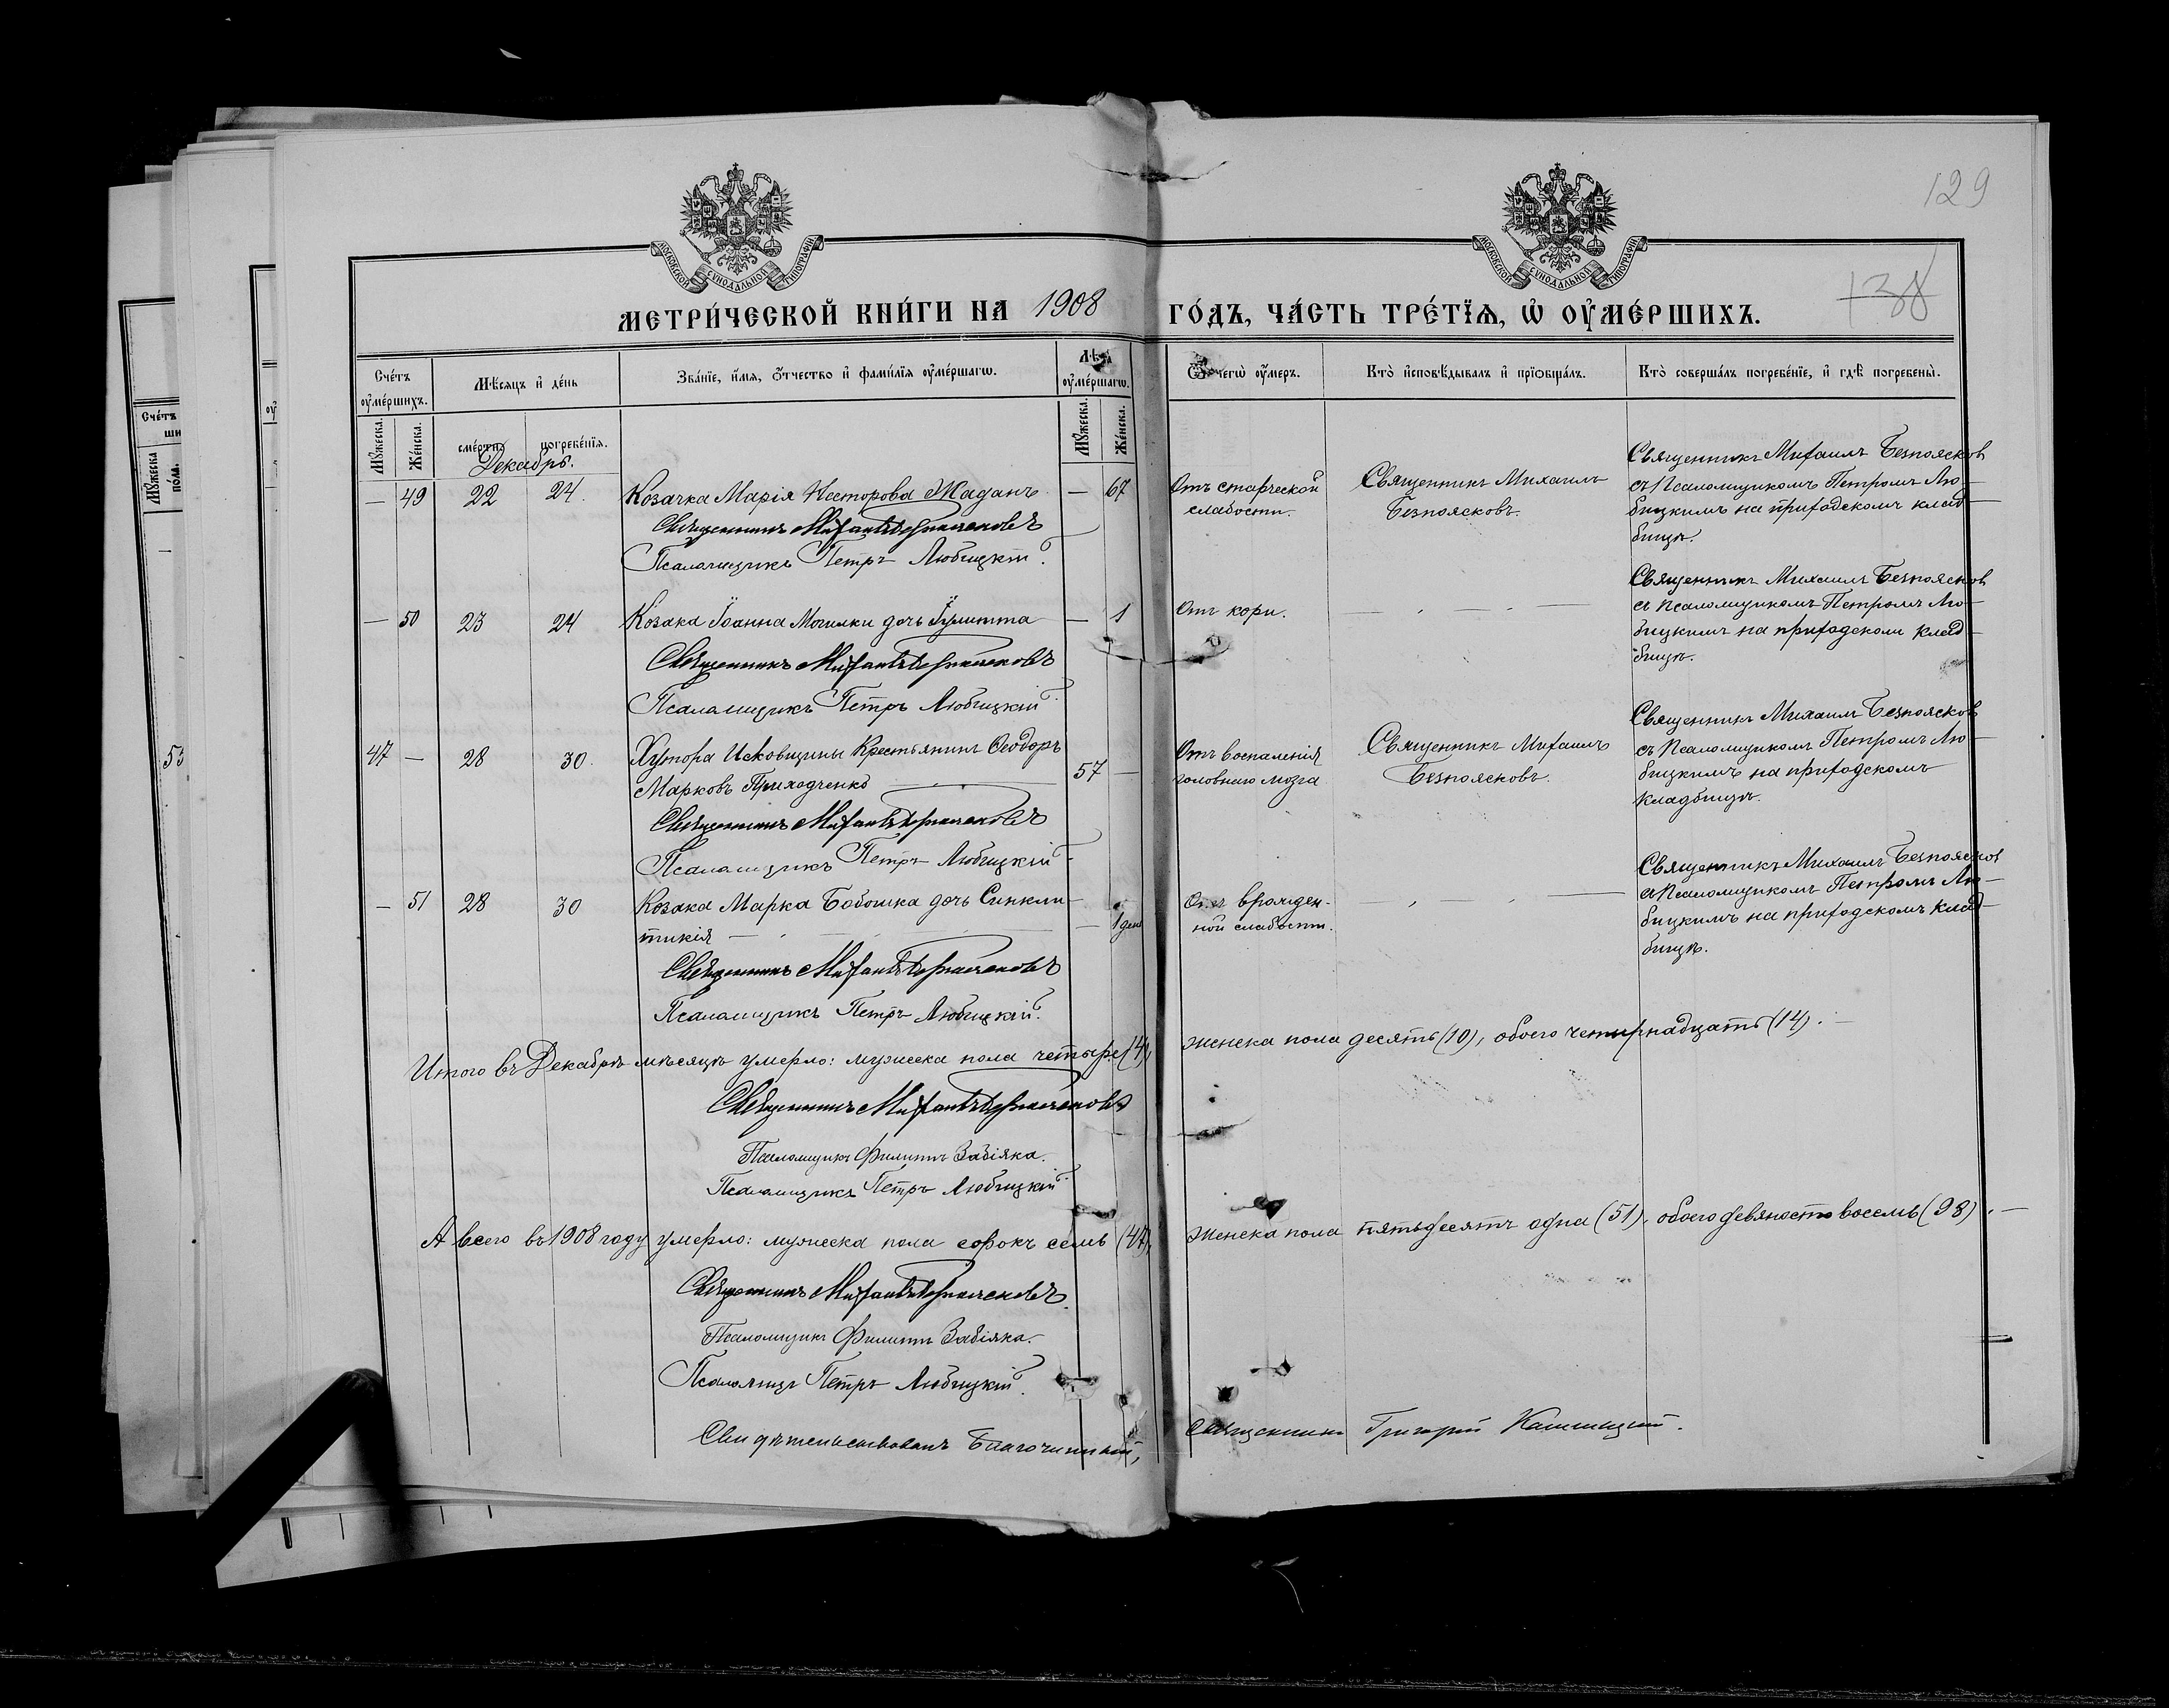 129
138
МОСКОВСКОЙ СУНОДАЛЬНОЙ ТИПОГРАФІИ
МОСКОВСКОЙ СУНОДАЛЬНОЙ ТИПОГРАФІИ
МЕТРИ́ЧЕСКОЙ КНИ́ГИ НА 1908 ГО́ДЪ, ЧА́СТЬ ТРЕ́ТЇѦ, Ѡ҆ ОУ҆МЕ́РШИХЪ.
Сче́тъ оу҆ме́ршихъ.
Мѣ́сѧцъ и҆ де́нь
Зва́нїе, и҆́мѧ, ѻ҆́тчество и҆ фами́лїѧ оу҆ме́ршагѡ.
Лѣ́та оу҆ме́ршагѡ.
Ѿ чегѡ̀ оу҆́меръ.
Кто̀ и҆сповѣ́дывалъ и҆ прїѻбща́лъ.
Кто̀ соверша́лъ погребе́нїе, и҆ гдѣ̀ погребены̀.
Мꙋ́жеска.
Же́нска.
сме́рти
погребе́нїѧ.
Мꙋ́жеска.
Же́нска.
Декабрь.
— 49 22 24. Козачка Марія Несторова Жаданъ — 67
Священникъ Михаилъ Безпоясковъ
Псаломщикъ Петръ Любицкій.
Отъ старческой
слабости.
Священникъ Михаилъ
Безпоясковъ.
Священникъ Михаилъ Безпоясков
съ Псаломщикомъ Петромъ Лю-
бицкимъ на приходскомъ клад-
бищѣ.
— 50 23 24 Козака Іоанна Могилки дочь Іулитта — 1
Священникъ Михаилъ Безпоясковъ
Псаломщикъ Петръ Любицкій
Отъ кори.
Священникъ Михаилъ Безпоясков
съ Псаломщикомъ Петромъ Лю-
бицкимъ на приходском клад-
бищѣ.
47 — 28 30. Хутора Исковщины Крестьянинъ Ѳеодоръ
Марковъ Приходченко 57 —
Священникъ Михаилъ Безпоясковъ
Псаломщикъ Петръ Любицкій
Отъ воспаленія
головного мозга
Священникъ Михаилъ
Безпоясковъ.
Священникъ Михаилъ Безпоясков
съ Псаломщикомъ Петромъ Лю-
бицкимъ на приходскомъ
кладбищѣ.
— 51 28 30 Козака Марка Бабошка дочь Синкли-
тикія — 1 день
Священникъ Михаилъ Безпоясковъ
Псаломщикъ Петръ Любицкій.
Отъ врожден-
ной слабости.
Священникъ Михаилъ Безпоясков
съ Псаломщикомъ Петромъ Лю-
бицкимъ на приходскомъ клад-
бищѣ.
Итого въ Декабрѣ мѣсяцѣ умерло: мужеска пола четыре (4), женска пола десять (10), обоего четырнадцать (14).
Священникъ Михаилъ Безпоясковъ
Псаломщикъ Филиппъ Забіяка.
Псаломщикъ Петръ Любицкій
А всего въ 1908 году умерло: мужеска пола сорокъ семь (47), женска пола пятьдесятъ одна (51), обоего девяносто восемь (98).
Священникъ Михаилъ Безпоясковъ
Псаломщикъ Филиппъ Забіяка.
Псаломщ. Петръ Любицкій.
Свидѣтельствовалъ Благочинный, Священникъ Григорій
Сче́тъ
Мꙋ́жеска по́л.
53